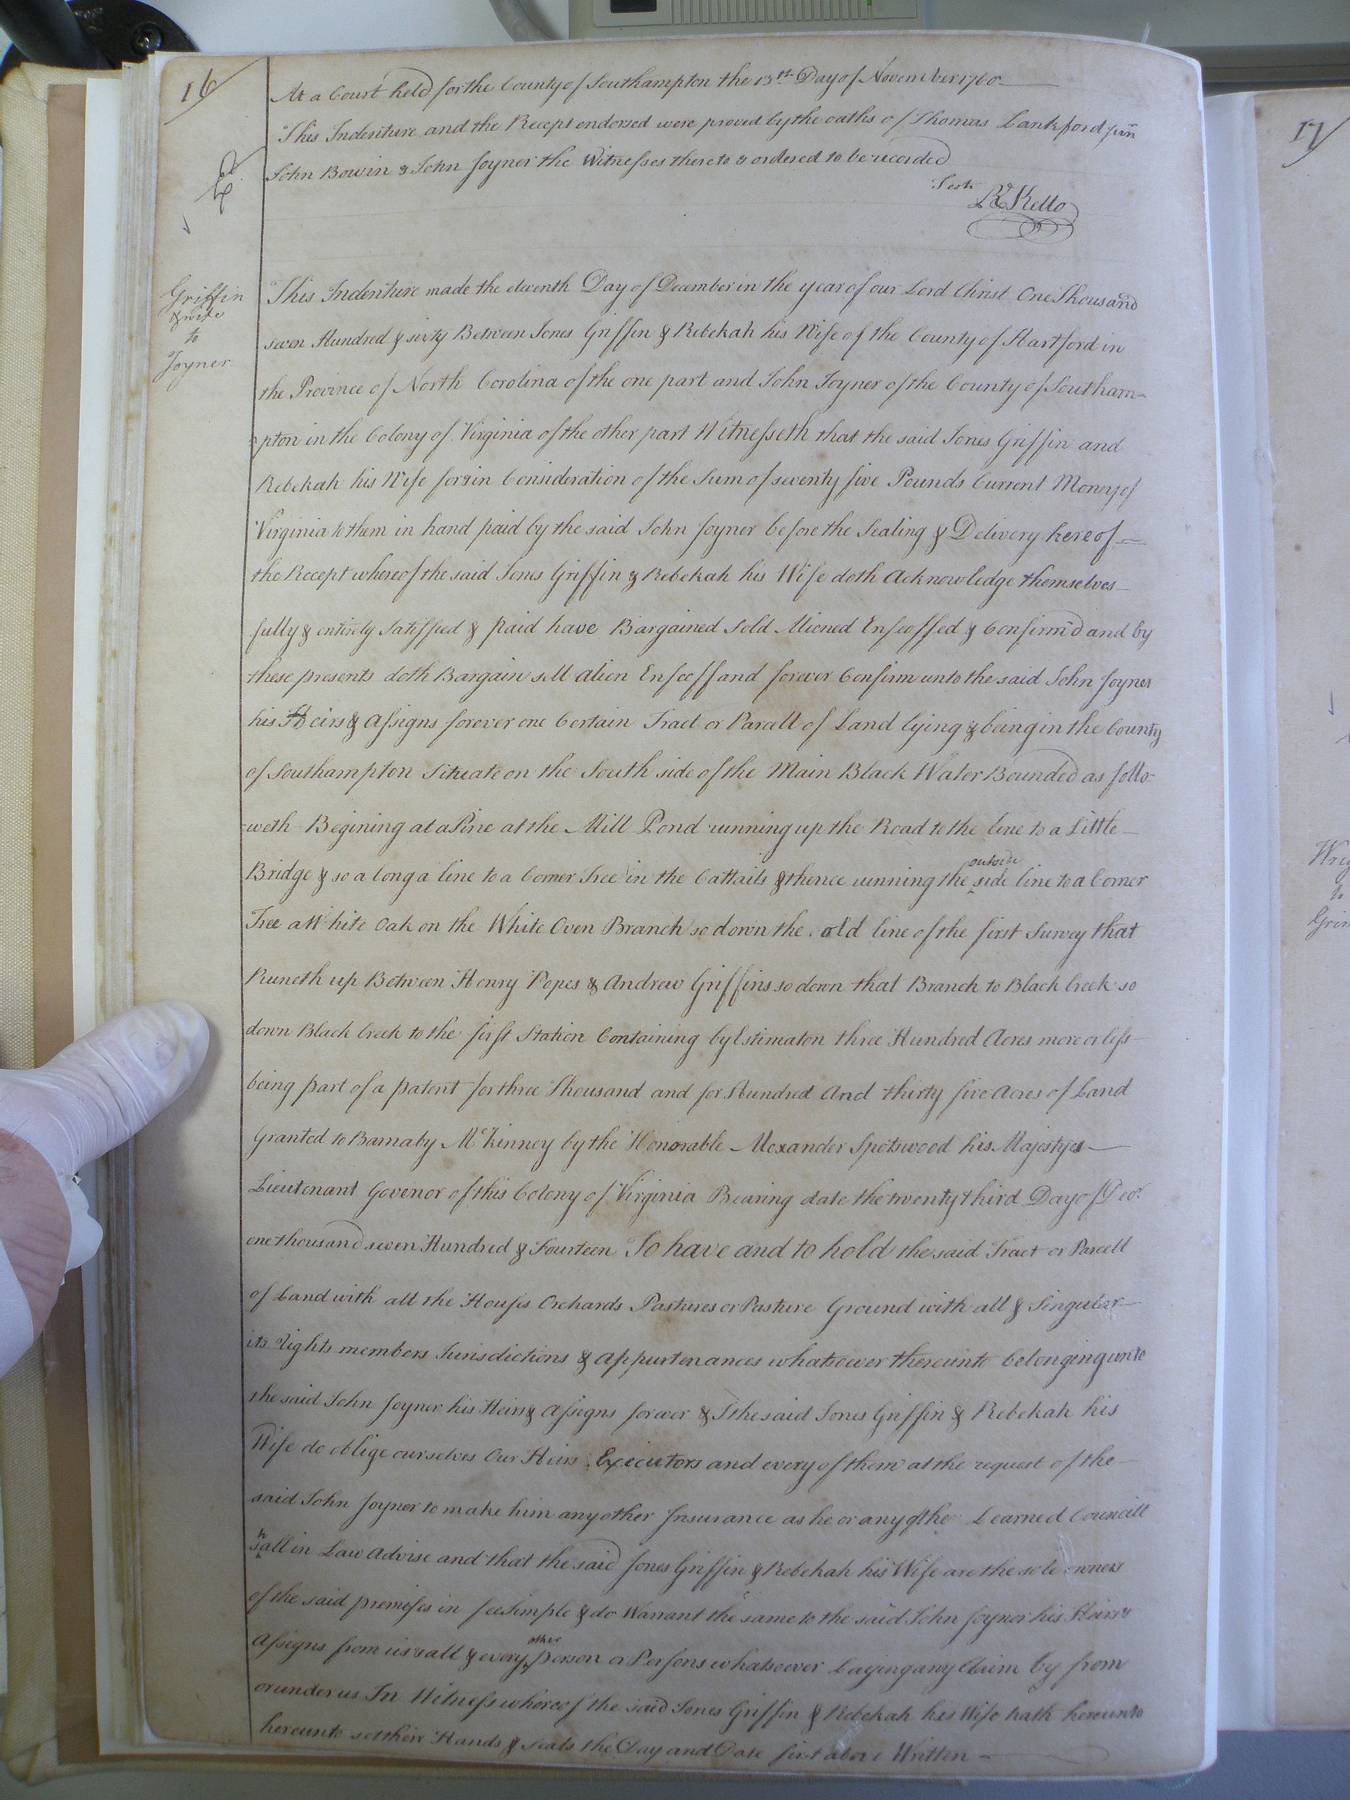 16
At a Court held for the County of Southampton the 13th Day of November 1760
This Indenture and the Recept endorsed were proved by the oaths of Thomas Lankford jun
John Bowin & John Joyner the Witnesses thereto & ordered to be recorded
Test
Rd Kello
Griffin
& wife
to
Joyner
This Indenture made the eleventh Day of December in the year of our Lord Christ One Thousand
seven Hundred & sixty Between Jones Griffin & Rebekah his Wife of the County of Hartford in
the Province of North Corolina of the one part and John Joyner of the County of Southam-
pton in the Colony of Virginia of the other part Witnesseth that the said Jones Griffin and
Rebekah his Wife for & in Consideration of the Sum of seventy five Pounds Current Money of
Virginia to them in hand paid by the said John Joyner before the Sealing & Delivery hereof
the Recept whereof the said Jones Griffin & Rebekah his Wife doth Acknowledge themselves
fully & entirely Satisfied & paid have Bargained Sold Aliened Enfeoffed & Confirm'd and by
these presents doth Bargain sell alien Enfeoff and forever Confirm unto the said John Joyner
his Heirs & Assigns forever one Certain Tract or Parcell of Land lying & being in the County
of Southampton Situate on the South side of the Main Black Water Bounded as follo-
-weth Begining at a Pine at the Mill Pond running up the Road to the line to a Little
Bridge & so a long a line to a Corner Tree in the Cattails & thence running the outside line to a Corner
Tree a White Oak on the White Oven Branch so down the old line of the first Survey that
Runeth up Between Henry Popes & Andrew Griffins so down that Branch to Black Creek so
down Black Creek to the first Station Containing by Estimaton three Hundred Acres more or less
being part of a patent for three Thousand and for Hundred And thirty five Acres of Land
Granted to Barnaby McKinney by the Honorable Alexander Spotswood his Majestyes
Lieutenant Govenor of this Colony of Virginia Bearing date the twenty third Day of Decr.
one thousand seven Hundred & Fourteen To have and to hold the said Tract or Parcell
of Land with all the Houses Orchards Pastures or Pasture Ground with all & Singular
its rights members Jurisdictions & appurtenances whatsoever thereunto belonging unto
the said John Joyner his Heirs & Assigns forever & I the said Jones Griffin & Rebekah his
Wife do oblige ourselves Our Heirs Executors and every of them at the request of the
said John Joyner to make him any other Insurance as he or any of the Learned Councill
shall in Law Advise and that the said Jones Griffin & Rebekah his Wife are the sole owners
of the said premises in fee simple & do Warrant the same to the said John Joyner his Heirs &
Assigns from us & all & every other person or Persons whatsoever Laying any Claim by from
or under us In Witness whereof the said Jones Griffin & Rebekah his Wife hath hereunto
hereunto set their Hands & Seals the Day and Date first above Written
17
to